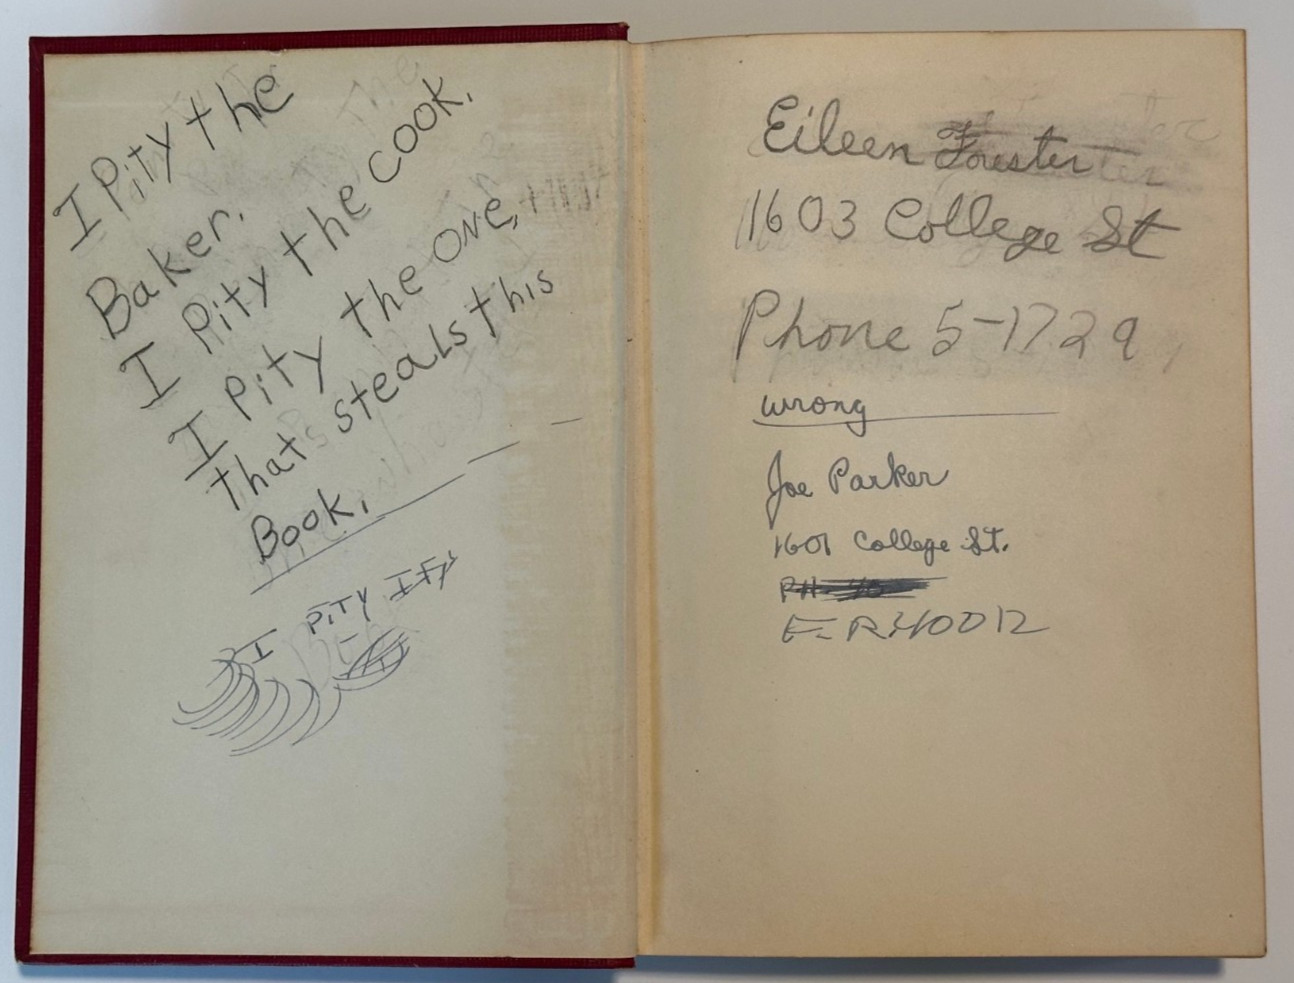 I Pity the
Baker.
I Pity the cook.
I Pity the one,
that steals this
Book.
I PITY IT
Eileen Forester
1603 College St
Phone 5-1729
wrong
Joe Parker
1601 College St.
PH
E-R40012